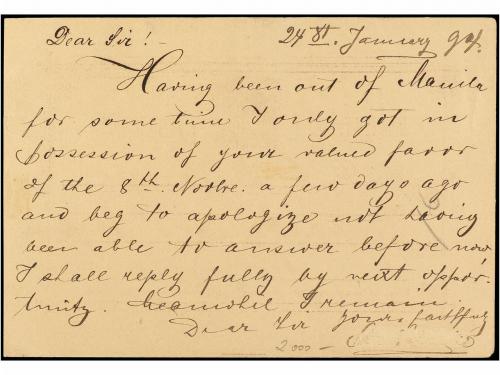 Dear Sir! - 24 8t. January 94.
Having been out of Manila
for some time I only got in
possession of your valued favor
of the 8th. Novbre. a few days ago
and beg to apologize not having
been able to answer before now,
I shall reply fully by next oppor-
tunity. Meanwhil I remain
Dear Sir yours faithfuly
2000 -